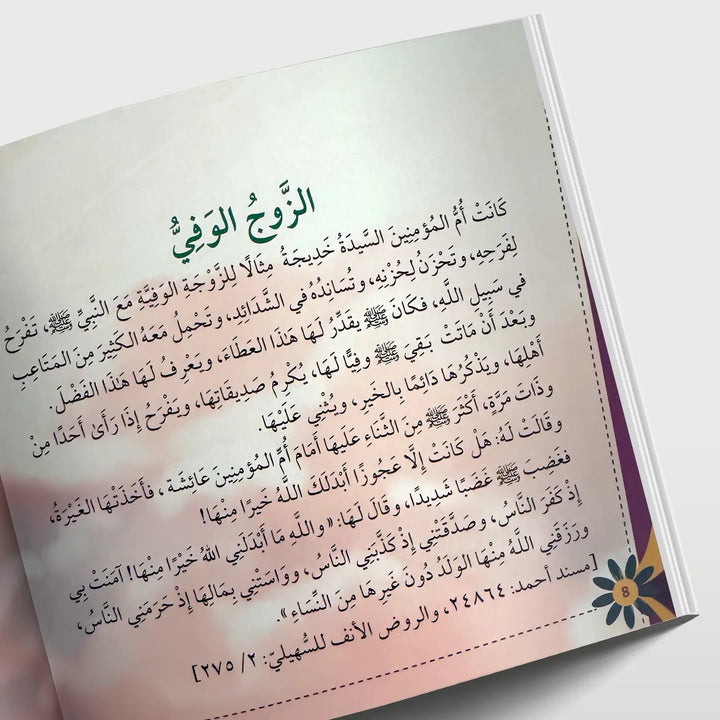 الزَّوْجُ الوَفِيُّ
كَانَتْ أُمُّ المُؤْمِنِينَ السَّيِّدَةُ خَدِيجَةُ مِثَالًا لِلزَّوْجَةِ الوَفِيَّةِ مَعَ النَّبِيِّ ﷺ، تَفْرَحُ
لِفَرَحِهِ، وتَحْزَنُ لِحُزْنِهِ، وتُسَانِدُهُ في الشَّدَائِدِ، وتَحْمِلُ مَعَهُ الكَثِيرَ مِنَ المَتَاعِبِ
في سَبِيلِ اللَّهِ، فكَانَ ﷺ يقَدِّرُ لَهَا هَذَا العَطَاءَ، ويَعْرِفُ لَهَا هَذَا الفَضْلَ.
وبَعْدَ أَنْ مَاتَتْ بَقِيَ ﷺ وَفِيًّا لَهَا، يُكْرِمُ صَدِيقَاتِهَا، ويَفْرَحُ إِذَا رَأَى أَحَدًا مِنْ
أَهْلِهَا، ويَذْكُرُهَا دَائِمًا بِالخَيرِ، ويُثْنِي عَلَيْهَا.
وذَاتَ مَرَّةٍ، أَكْثَرَ ﷺ مِنَ الثَّنَاءِ عَلَيهَا أَمَامَ أُمِّ المُؤْمِنِينَ عَائِشَة، فَأَخَذَتْهَا الغَيْرَةُ،
وقَالَتْ لَهُ: هَلْ كَانَتْ إِلَّا عَجُوزًا أَبْدَلَكَ اللَّهُ خَيرًا مِنْهَا!
فغَضِبَ ﷺ غَضَبًا شَدِيدًا، وقَالَ لَهَا: «واللَّهِ مَا أَبْدَلَنِي اللهُ خَيْرًا مِنْهَا! آمَنَتْ بِي
إِذْ كَفَرَ النَّاسُ، وصَدَّقَتْنِي إِذْ كَذَّبَنِي النَّاسُ، ووَاسَتْنِي بِمَالِهَا إِذْ حَرَمَنِي النَّاسُ،
ورَزَقَنِي اللَّهُ مِنْهَا الوَلَدُ دُونَ غَيرِهَا مِنَ النِّسَاءِ».
[مسند أحمد: ٢٤٨٦٤، والروض الأنف للسُّهيليّ: ٢/ ٢٧٥]
8